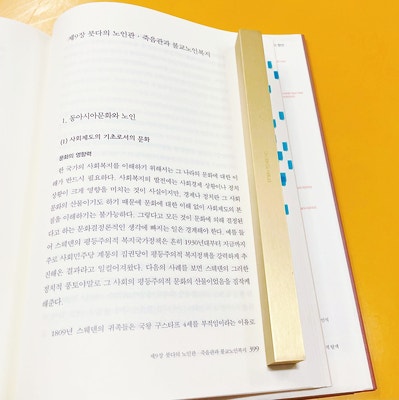 제9장 붓다의 노인관·죽음관과 불교노인복지
1. 동아시아문화와 노인
(1) 사회제도의 기초로서의 문화
문화의 영향력
한 국가의 사회복지를 이해하기 위해서는 그 나라의 문화에 대한 이
해가 반드시 필요하다. 사회복지의 발전에는 사회경제 상황이나 정치
상황이 크게 영향을 미치는 것이 사실이지만, 경제나 정치란 그 사회
문화의 산물이기도 하기 때문에 문화에 대한 이해 없이 사회제도의 본
질을 이해하기는 불가능하다. 그렇다고 모든 것이 문화에 의해 결정된
다고 하는 문화결정론적인 생각에 빠지는 일은 경계해야 한다. 예를 들
어 스웨덴의 평등주의적 복지국가정책은 흔히 1930년대부터 지금까지
주로 사회민주당 계통의 집권당이 평등주의적 복지정책을 강력하게 추
진해온 결과라고 일컬어져왔다. 다음의 사례를 보면 스웨덴의 그러한
정치적 풍토야말로 그 사회의 평등주의적 문화의 산물이었음을 짐작케
해준다.
1809년 스웨덴의 귀족들은 국왕 구스타프 4세를 부적임이라는 이유로
제9장 붓다의 노인관·죽음관과 불교노인복지 399